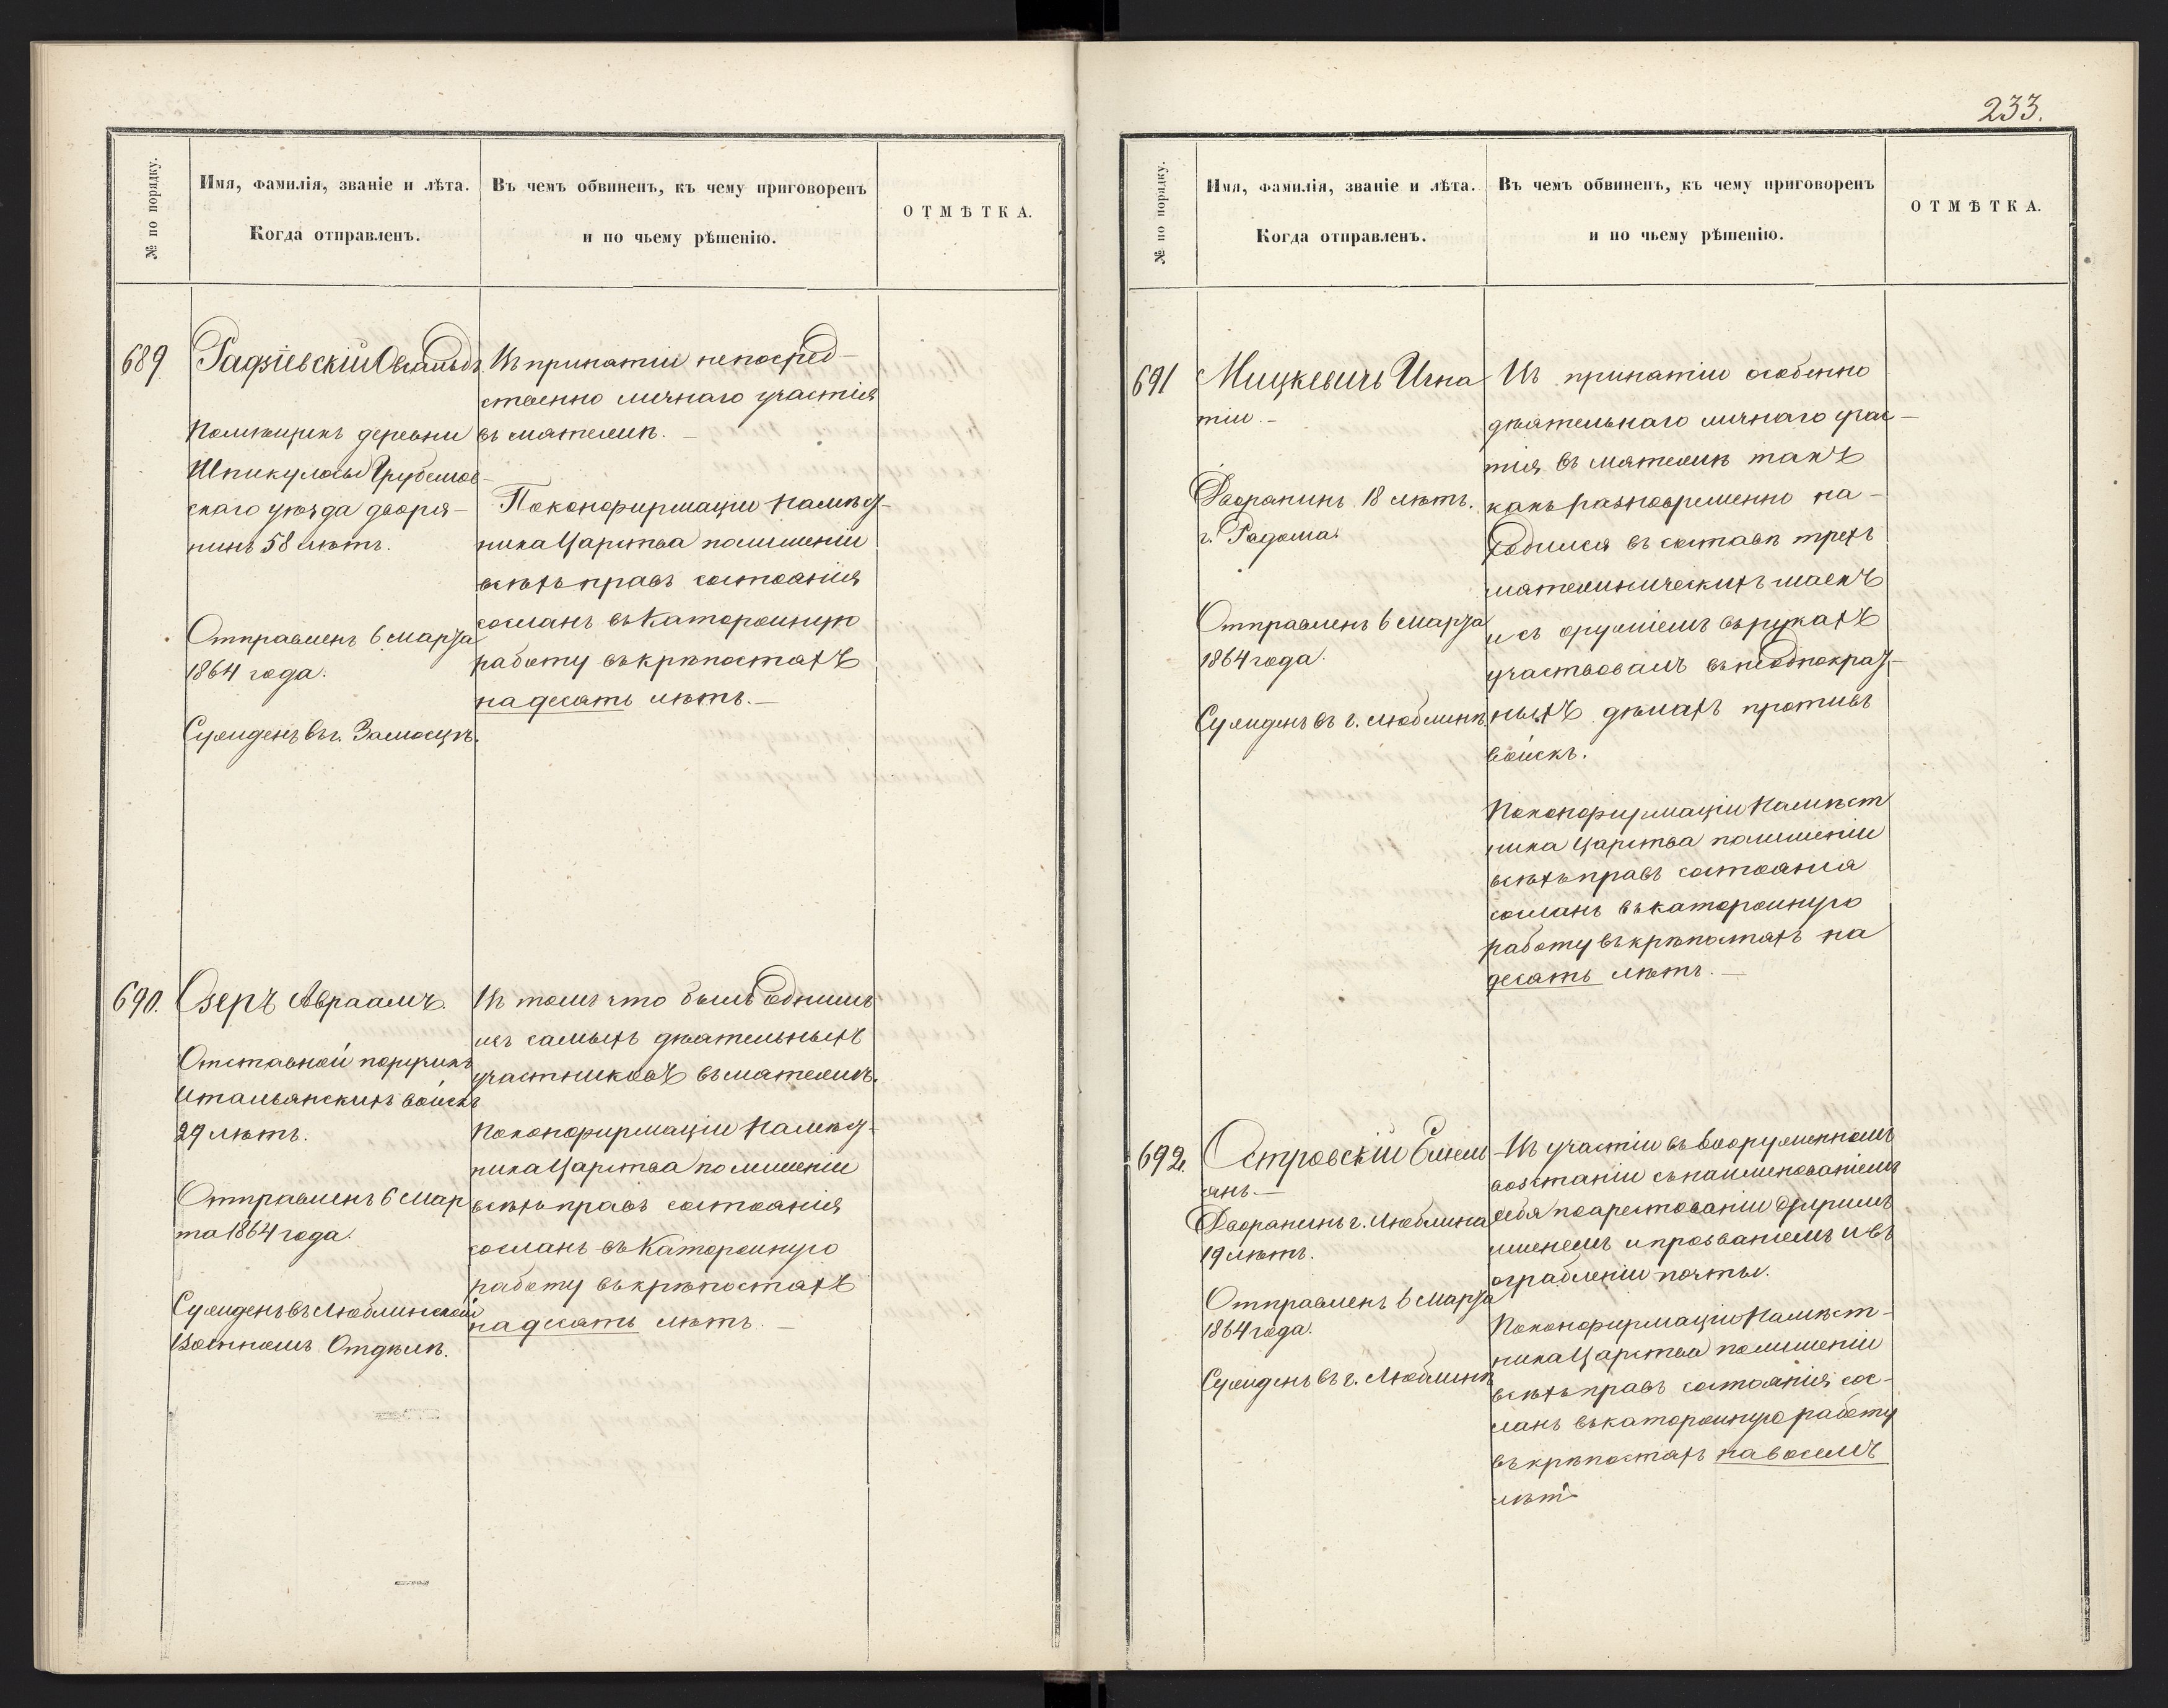 233.
№ по порядку.
Имя, фамилія, званіе и лѣта.
Когда отправленъ.
Въ чемъ обвиненъ, къ чему приговоренъ
и по чьему рѣшенію.
ОТМѢТКА.
689
Радзіевскій
Помѣщикъ деревни
Шпикулосы Грубешов-
скаго уѣзда дворя-
нинъ 58 лѣтъ.
Отправленъ 6 Марта
1864 года.
Сужденъ въ г. Замосцѣ.
Въ принятіи непосред-
ственно личнаго участія
въ мятежѣ. —
По конфирмаціи Намѣст-
ника Царства по лишеніи
всѣхъ правъ состоянія
сосланъ въ Каторжную
работу въ крѣпостяхъ
на десять лѣтъ. —
690.
Озеръ Авраамъ.
Отставной поручикъ
Итальянскихъ войскъ
29 лѣтъ.
Отправленъ 6 Мар
та 1864 года.
Сужденъ въ Люблинскомъ
Военномъ Отдѣлѣ.
Въ томъ что былъ однимъ
изъ самыхъ дѣятельныхъ
участниковъ въ мятежѣ.
По конфирмаціи Намѣст-
ника Царства по лишеніи
всѣхъ правъ состоянія
сосланъ въ Каторжную
работу въ крѣпостяхъ
на десять лѣтъ. —
№ по порядку.
Имя, фамилія, званіе и лѣта.
Когда отправленъ.
Въ чемъ обвиненъ, къ чему приговоренъ
и по чьему рѣшенію.
ОТМѢТКА.
691
Мицкевичъ Игна
тій. —
Дворянинъ 18 лѣтъ.
г. Радома.
Отправленъ 6 Марта
1864 года.
Сужденъ въ г. Люблинѣ.
Въ принятіи особенно
дѣятельнаго личнаго учас-
тія въ мятежѣ такъ
какъ разновременно на-
ходился въ составѣ трехъ
мятежническихъ шаекъ
и съ оружіемъ въ рукахъ
участвовалъ въ неоднократ-
ныхъ дѣлахъ противъ
войскъ.
По конфирмаціи Намѣст
ника Царства по лишеніи
всѣхъ правъ состоянія
сосланъ въ каторжную
работу въ крѣпостяхъ на
десять лѣтъ. —
692.
Островскій Емелі
янъ. —
Дворянинъ г. Люблина
19 лѣтъ.
Отправленъ 6 Марта
1864 года.
Сужденъ въ г. Люблинѣ
Въ участіи въ вооруженномъ
возстаніи съ наименованіемъ
себя по арестованіи другимъ
именемъ и прозваніемъ и въ
ограбленіи почты.
По конфирмаціи Намѣст-
ника Царства по лишеніи
всѣхъ правъ состоянія сос-
ланъ въ каторжную работу
въ крѣпостяхъ на восемь
лѣтъ